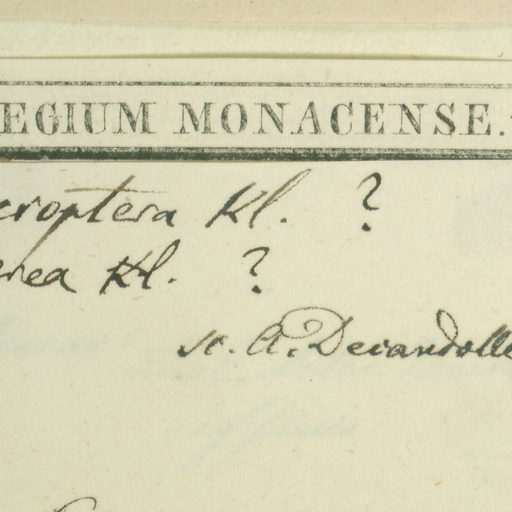 EGIUM MONACENSE.
croptera Kl. ?
erea Kl. ?
A. Decandolle